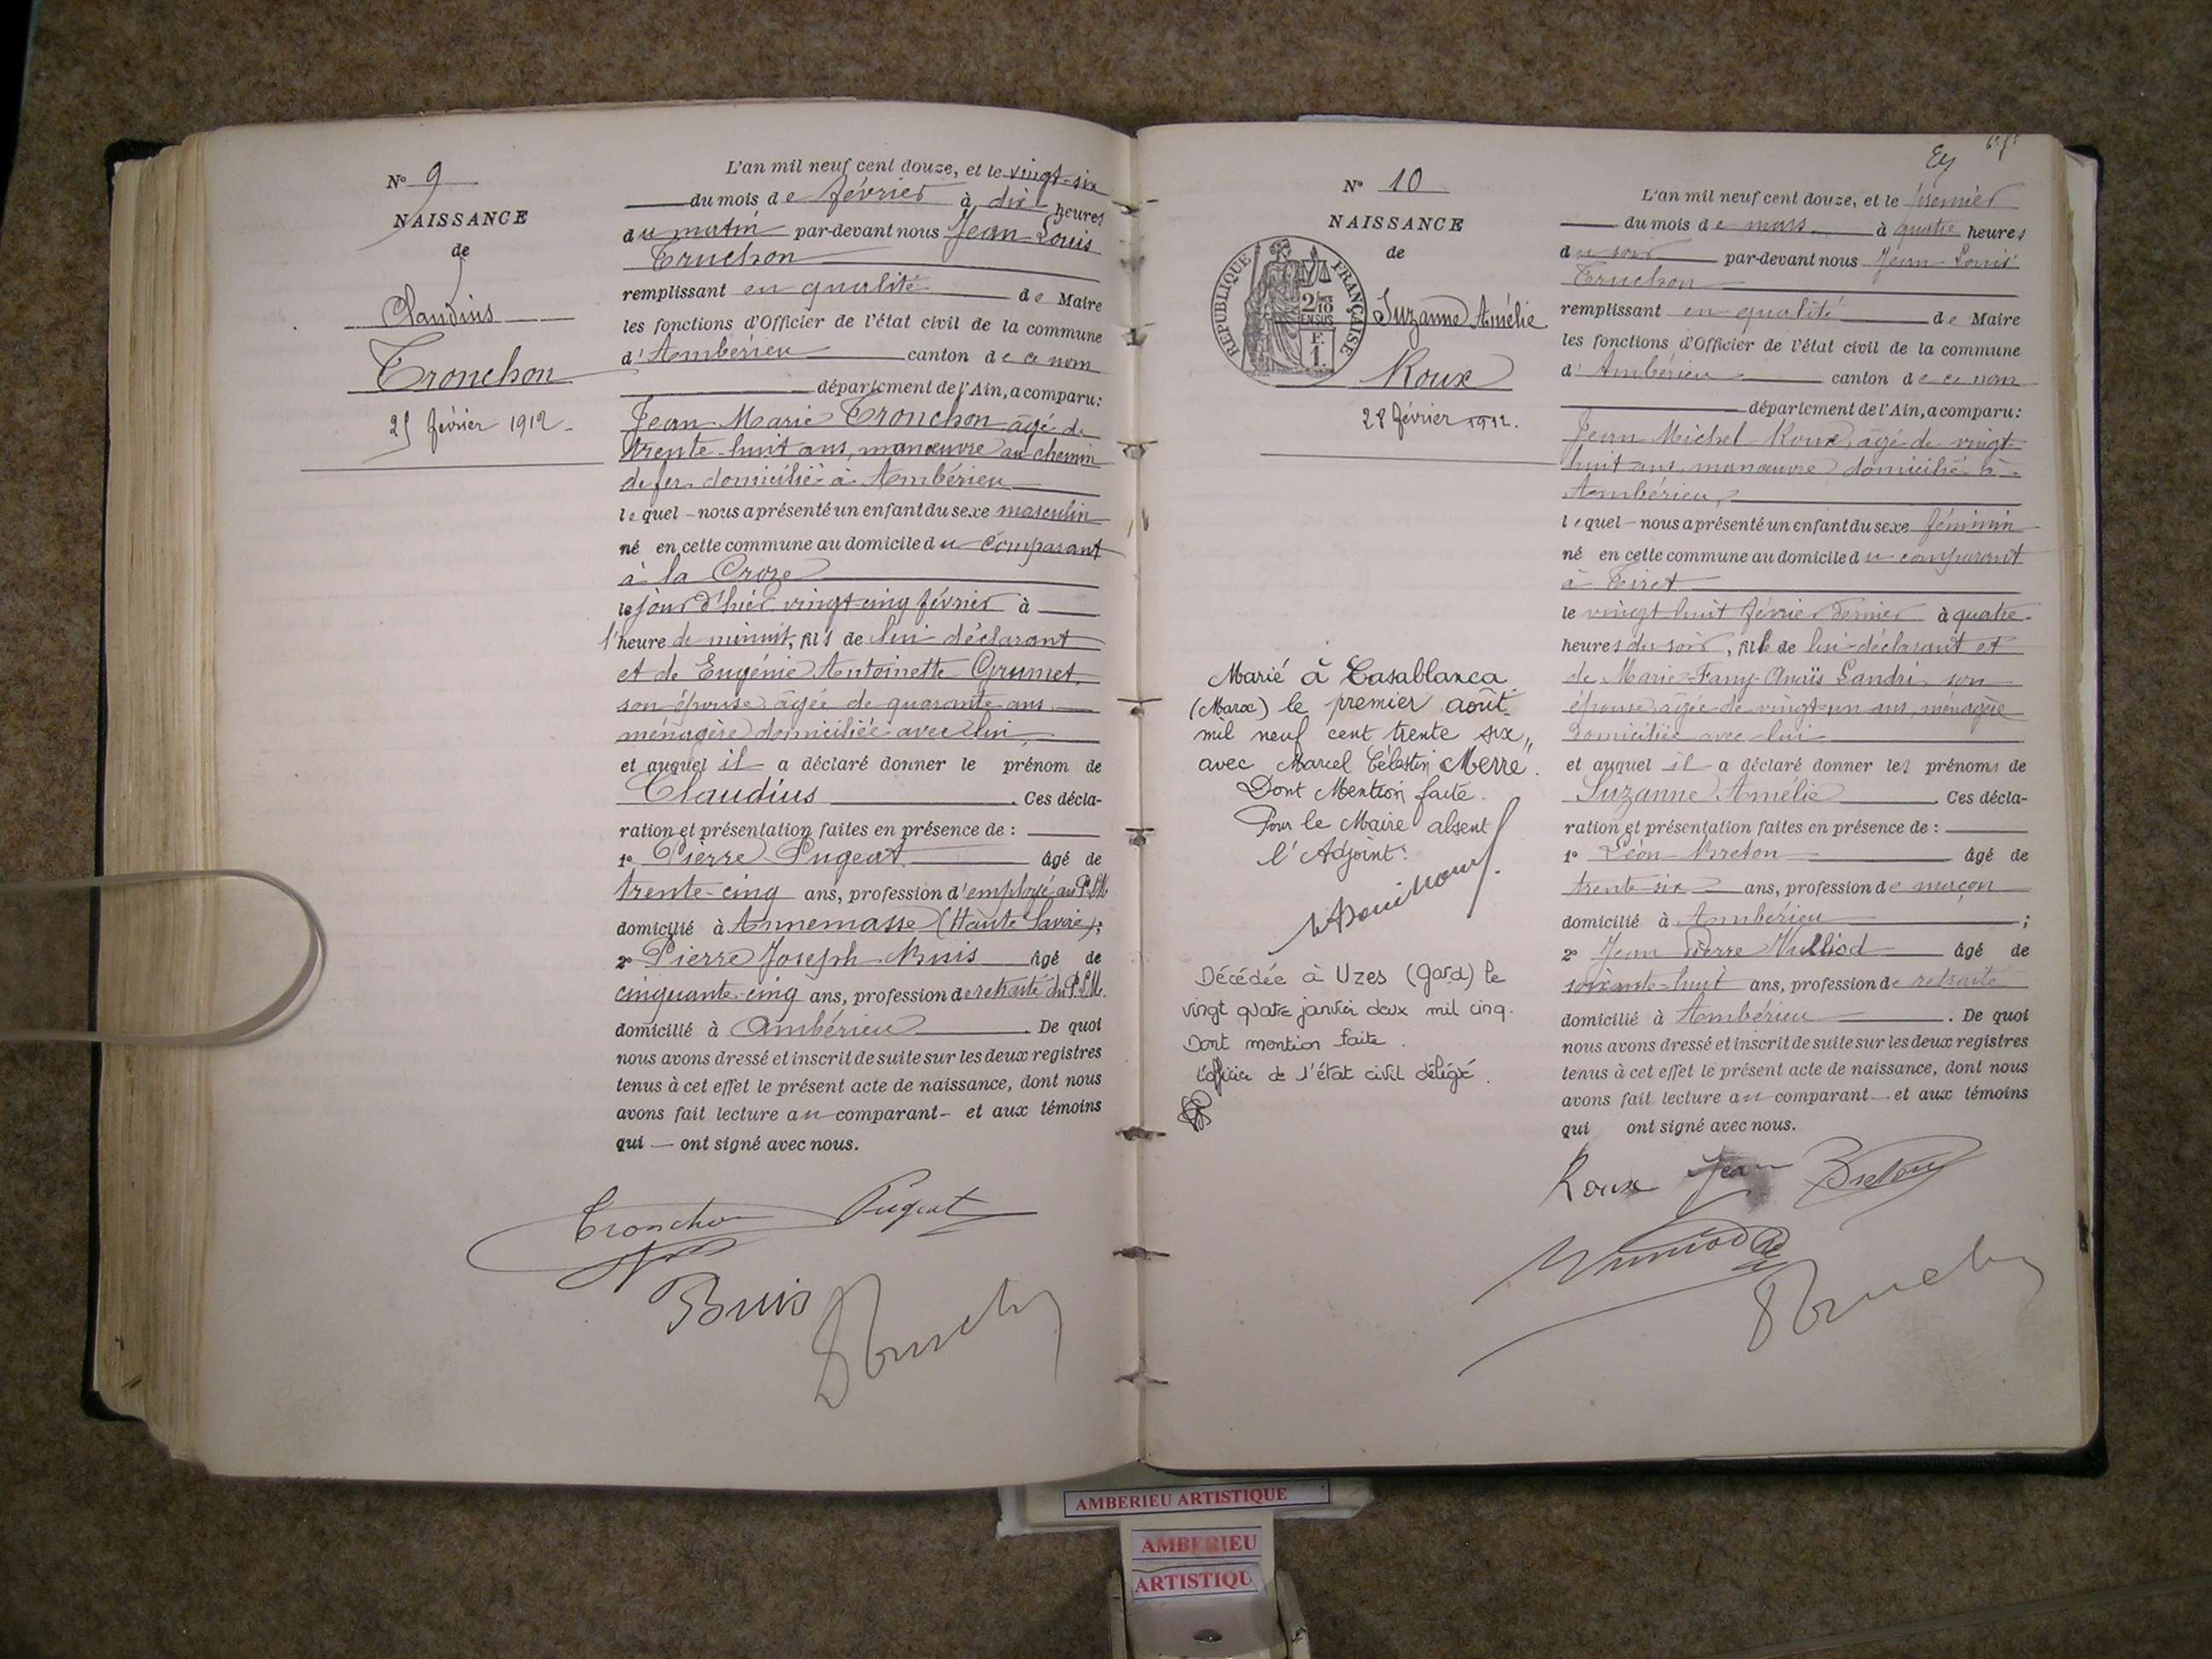 N° 9
NAISSANCE
de
Claudius
Tronchon
25 février 1912.
L'an mil neuf cent douze, et le vingt-six
du mois de février à dix heures
du matin par-devant nous Jean Louis
Truchon
remplissant en qualité de Maire
les fonctions d'Officier de l'état civil de la commune
d'Ambérieu canton de ce nom
département de l'Ain, a comparu:
Jean Marie Tronchon âgé de
trente-huit ans, manœuvre au chemin
de fer domicilié à Ambérieu
lequel - nous a présenté un enfant du sexe masculin
né en cette commune au domicile du comparant
à la Croze
le jour d'hier vingt-cinq février à
l'heure de minuit, fils de lui déclarant
et de Eugénie Antoinette Grumet,
son épouse âgée de quarante ans
ménagère domiciliée avec lui,
et auquel il a déclaré donner le prénom de
Claudius . Ces décla-
ration et présentation faites en présence de :
1° Pierre Pugeat âgé de
trente-cinq ans, profession d'employé au P.L.M.
domicilié à Annemasse (Haute Savoie);
2° Pierre Joseph Buis âgé de
cinquante-cinq ans, profession de retraité du P.L.M.
domicilié à Ambérieu . De quoi
nous avons dressé et inscrit de suite sur les deux registres
tenus à cet effet le présent acte de naissance, dont nous
avons fait lecture au comparant - et aux témoins
qui — ont signé avec nous.
Tronchon Pugeat
Buis Truchon
N° 10
NAISSANCE
de
RÉPUBLIQUE FRANÇAISE
2/10 EN SUS
F. 1.
Suzanne Amélie
Roux
28 février 1912.
Marié à Casablanca
(Maroc) le premier août
mil neuf cent trente six,
avec Marcel Célestin Merre.
Dont Mention faite.
Pour le Maire absent
l'Adjoint:
Décédée à Uzes (Gard) le
vingt quatre janvier deux mil cinq.
Dont mention faite.
L'officier de l'état civil délégué.
L'an mil neuf cent douze, et le premier
du mois de mars à quatre heures
du soir par-devant nous Jean Louis
Truchon
remplissant en qualité de Maire
les fonctions d'Officier de l'état civil de la commune
d'Ambérieu canton de ce nom
département de l'Ain, a comparu:
Jean Michel Roux, âgé de vingt
huit ans, manœuvre domicilié à
Ambérieu,
lequel - nous a présenté un enfant du sexe féminin
né en cette commune au domicile du comparant
à Tiret
le vingt huit février dernier à quatre
heures du soir, fille de lui-déclarant et
de Marie-Fany-Anaïs Landri son
épouse âgée de vingt-un ans, ménagère
domiciliée avec lui
et auquel il a déclaré donner les prénoms de
Suzanne Amélie . Ces décla-
ration et présentation faites en présence de :
1° Léon Breton âgé de
trente six ans, profession de maçon
domicilié à Ambérieu ;
2° Jean Pierre Vulliod âgé de
soixante-huit ans, profession de retraité
domicilié à Ambérieu . De quoi
nous avons dressé et inscrit de suite sur les deux registres
tenus à cet effet le présent acte de naissance, dont nous
avons fait lecture au comparant — et aux témoins
qui ont signé avec nous.
Roux Jean Breton
Truchon
AMBERIEU ARTISTIQUE
AMBERIEU
ARTISTIQU